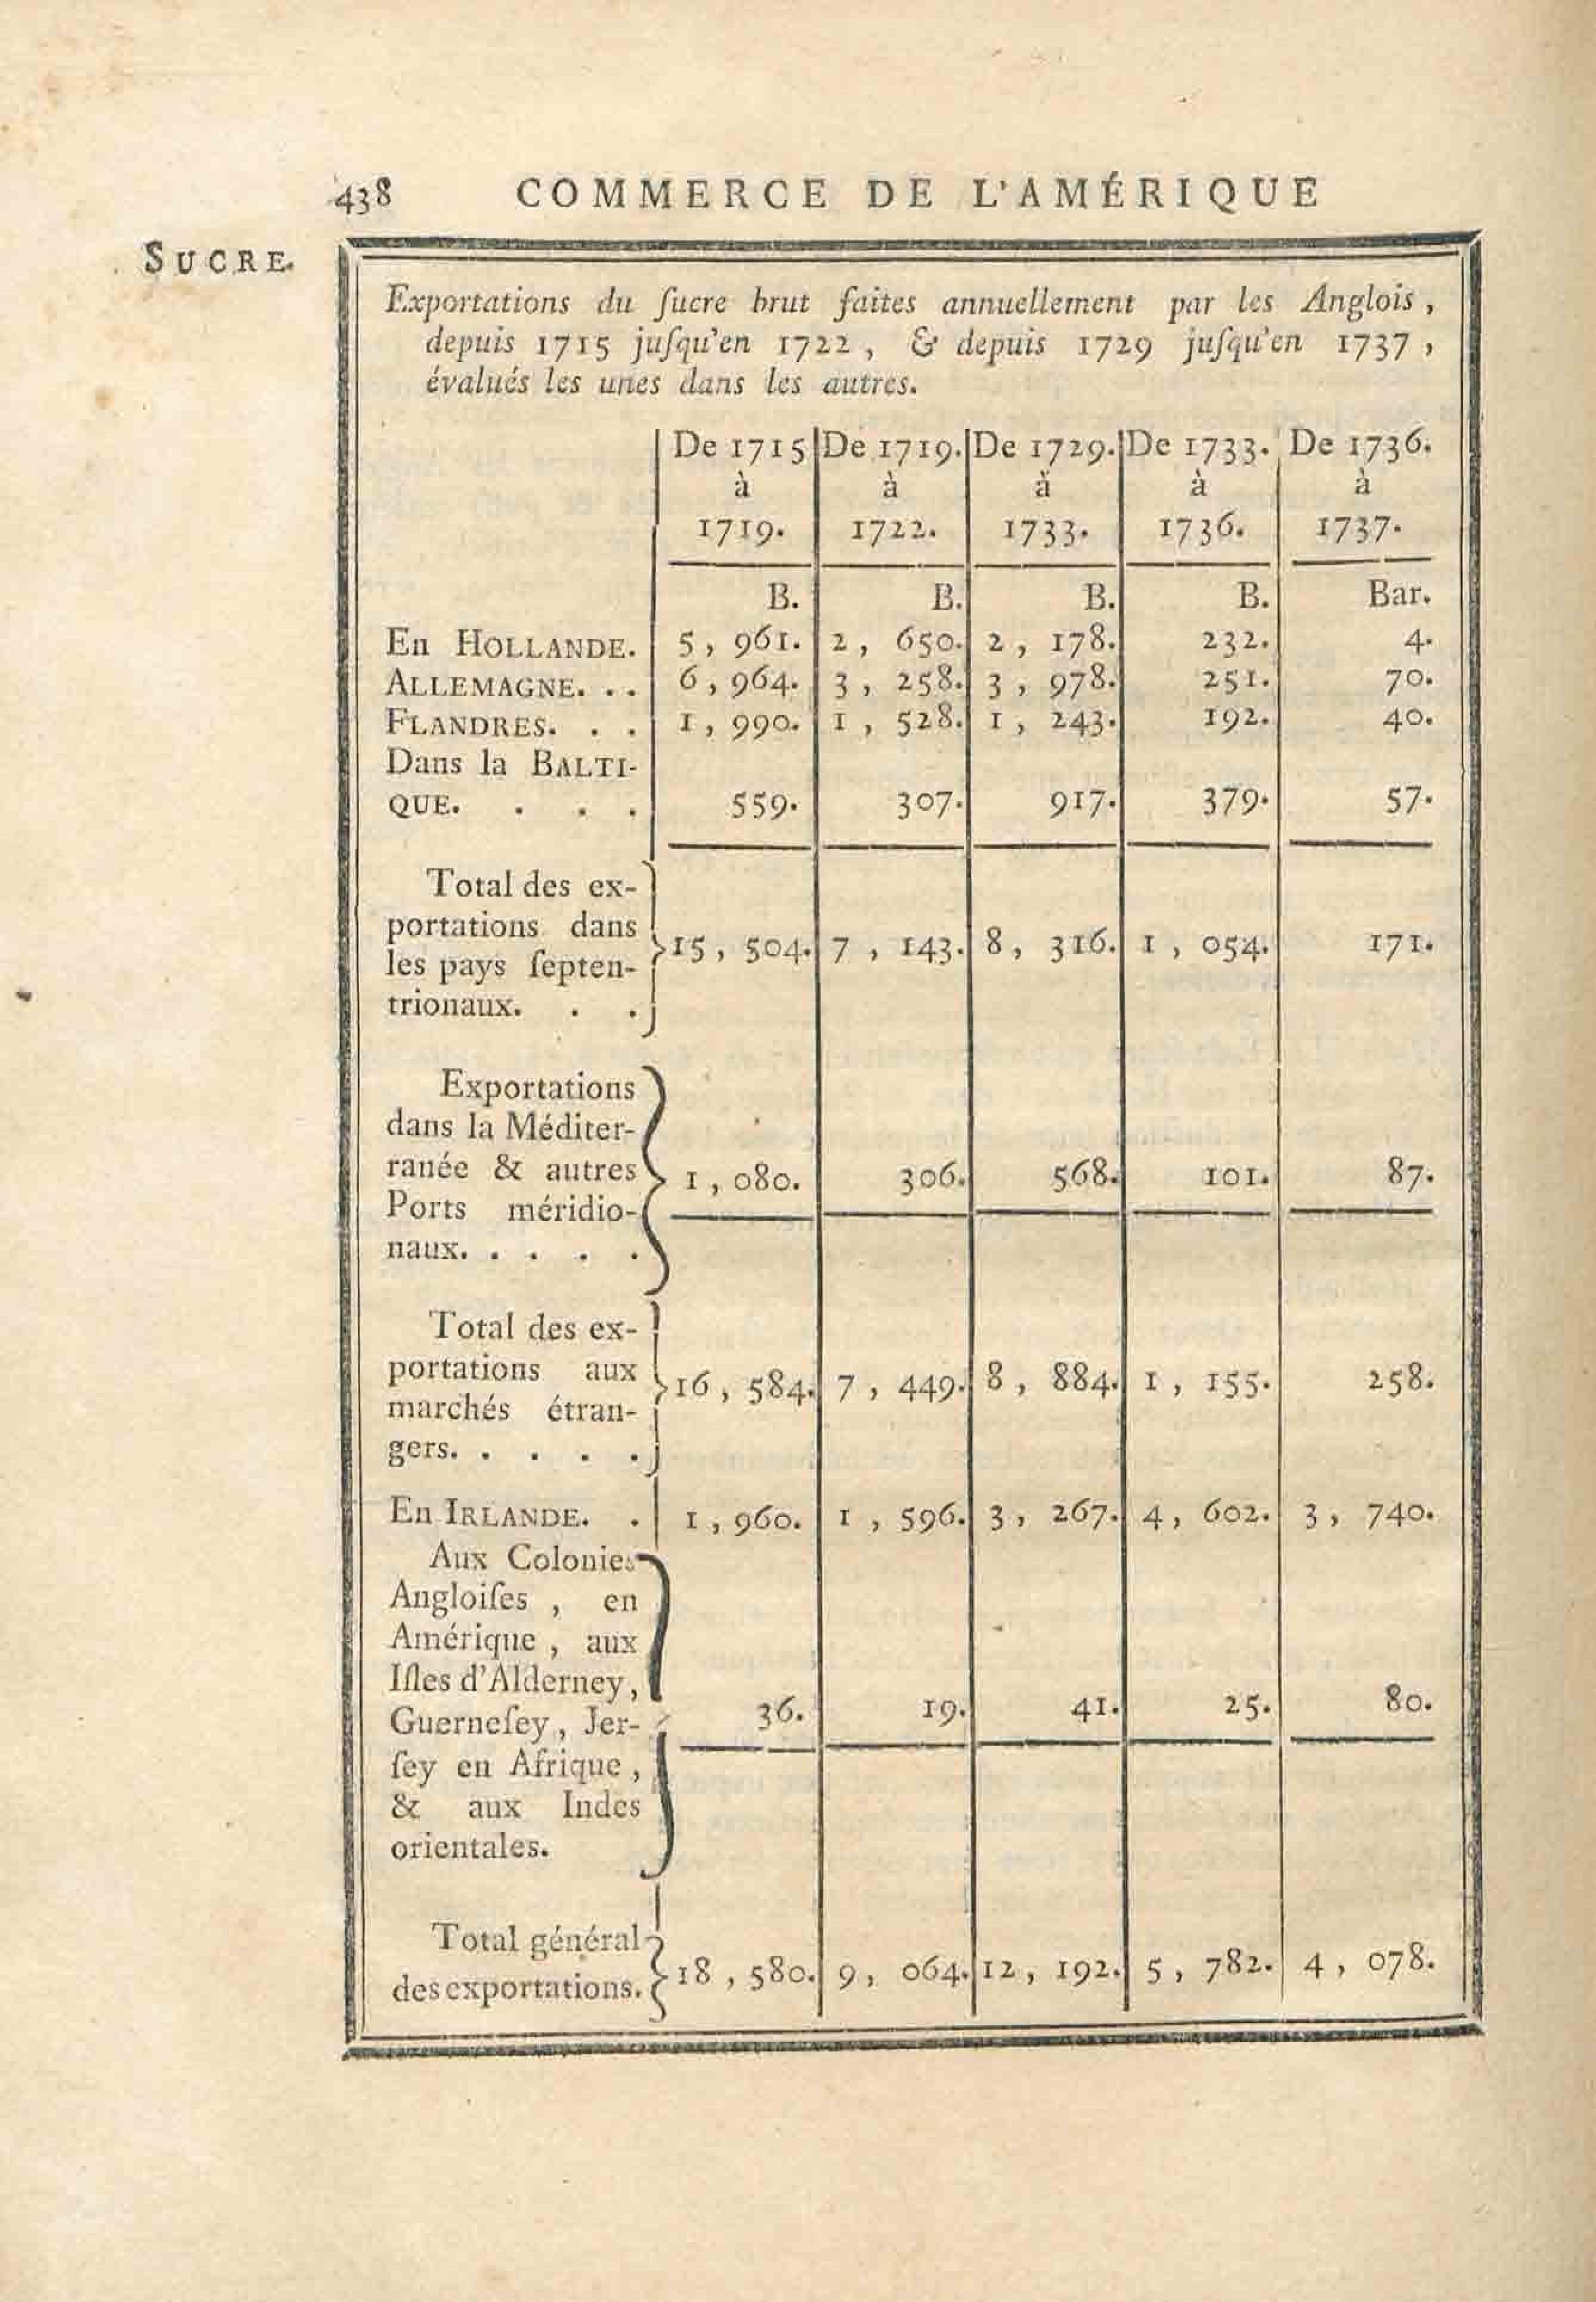 438 COMMERCE DE L'AMÉRIQUE
SUCRE.
Exportations du ſucre brut faites annuellement par les Anglois,
depuis 1715 juſqu'en 1722, & depuis 1729 juſqu'en 1737,
évalués les unes dans les autres.
De 1715 De 1719. De 1729. De 1733. De 1736.
à à à à à
1719. 1722. 1733. 1736. 1737.
B. B. B. B. Bar.
En HOLLANDE. 5, 961. 2, 650. 2, 178. 232. 4.
ALLEMAGNE. . . 6, 964. 3, 258. 3, 978. 251. 70.
FLANDRES. . . 1, 990. 1, 528. 1, 243. 192. 40.
Dans la BALTI-
QUE. . . . 559. 307. 917. 379. 57.
Total des ex-
portations dans
les pays ſepten- 15, 504. 7, 143. 8, 316. 1, 054. 171.
trionaux. . .
Exportations
dans la Méditer-
ranée & autres 1, 080. 306. 568. 101. 87.
Ports méridio-
naux. . . . .
Total des ex-
portations aux 16, 584. 7, 449. 8, 884. 1, 155. 258.
marchés étran-
gers. . . . .
En IRLANDE. . 1, 960. 1, 596. 3, 267. 4, 602. 3, 740.
Aux Colonies
Angloiſes, en
Amérique, aux
Iſles d'Alderney,
Guerneſey, Jer- 36. 19. 41. 25. 80.
ſey en Afrique,
& aux Indes
orientales.
Total général
des exportations. 18, 580. 9, 064. 12, 192. 5, 782. 4, 078.